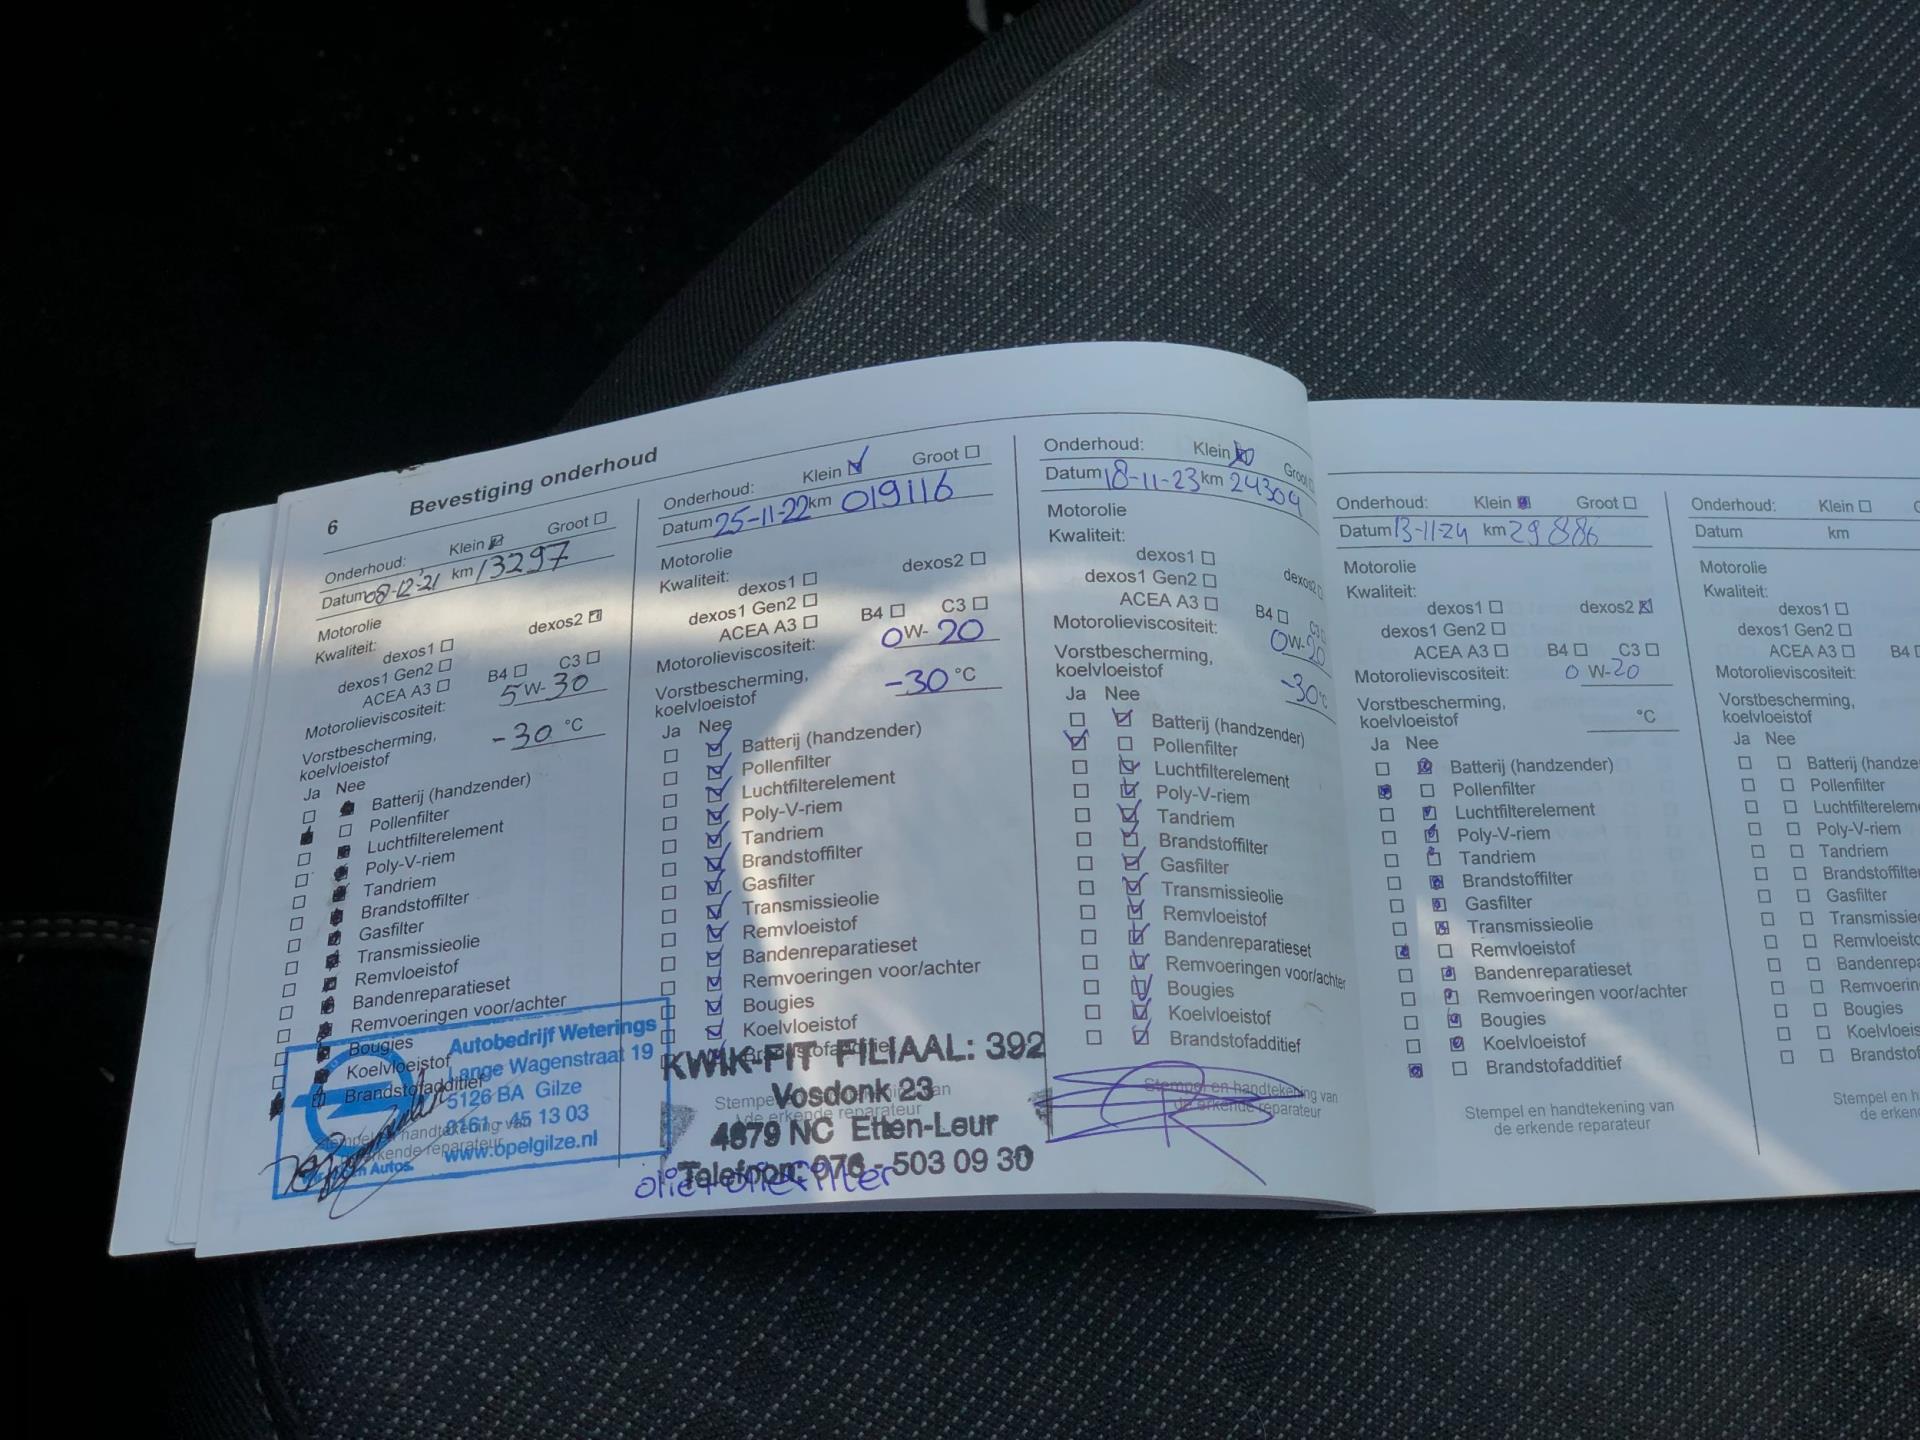 6 Bevestiging onderhoud
Onderhoud: Klein Groot
Datum 08-12-21 km 13297
Motorolie
Kwaliteit:
dexos1 dexos2
dexos1 Gen2
ACEA A3 B4 C3
Motorolieviscositeit: 5 W- 30
Vorstbescherming,
koelvloeistof -30 °C
Ja Nee
Batterij (handzender)
Pollenfilter
Luchtfilterelement
Poly-V-riem
Tandriem
Brandstoffilter
Gasfilter
Transmissieolie
Remvloeistof
Bandenreparatieset
Remvoeringen voor/achter
Bougies
Koelvloeistof
Brandstofadditief
Stempel en handtekening van
de erkende reparateur
Autobedrijf Weterings
Lange Wagenstraat 19
5126 BA Gilze
0161 - 45 13 03
www.opelgilze.nl
Autos.
Onderhoud: Klein Groot
Datum 25-11-22 km 019116
Motorolie
Kwaliteit:
dexos1 dexos2
dexos1 Gen2
ACEA A3 B4 C3
Motorolieviscositeit: 0 W- 20
Vorstbescherming,
koelvloeistof -30 °C
Ja Nee
Batterij (handzender)
Pollenfilter
Luchtfilterelement
Poly-V-riem
Tandriem
Brandstoffilter
Gasfilter
Transmissieolie
Remvloeistof
Bandenreparatieset
Remvoeringen voor/achter
Bougies
Koelvloeistof
Brandstofadditief
Stempel en handtekening van
de erkende reparateur
KWIK-FIT FILIAAL: 392
Vosdonk 23
4879 NC Etten-Leur
Telefoon: 076 - 503 09 30
olie + oliefilter
Onderhoud: Klein Groot
Datum 18-11-23 km 24304
Motorolie
Kwaliteit:
dexos1 dexos2
dexos1 Gen2
ACEA A3 B4 C3
Motorolieviscositeit: 0 W- 20
Vorstbescherming,
koelvloeistof -30 °C
Ja Nee
Batterij (handzender)
Pollenfilter
Luchtfilterelement
Poly-V-riem
Tandriem
Brandstoffilter
Gasfilter
Transmissieolie
Remvloeistof
Bandenreparatieset
Remvoeringen voor/achter
Bougies
Koelvloeistof
Brandstofadditief
Stempel en handtekening van
de erkende reparateur
Onderhoud: Klein Groot
Datum 13-11-24 km 29886
Motorolie
Kwaliteit:
dexos1 dexos2
dexos1 Gen2
ACEA A3 B4 C3
Motorolieviscositeit: 0 W-20
Vorstbescherming,
koelvloeistof °C
Ja Nee
Batterij (handzender)
Pollenfilter
Luchtfilterelement
Poly-V-riem
Tandriem
Brandstoffilter
Gasfilter
Transmissieolie
Remvloeistof
Bandenreparatieset
Remvoeringen voor/achter
Bougies
Koelvloeistof
Brandstofadditief
Stempel en handtekening van
de erkende reparateur
Onderhoud: Klein G
Datum km
Motorolie
Kwaliteit:
dexos1
dexos1 Gen2
ACEA A3 B4
Motorolieviscositeit:
Vorstbescherming,
koelvloeistof
Ja Nee
Batterij (handze
Pollenfilter
Luchtfilterelem
Poly-V-riem
Tandriem
Brandstoffilter
Gasfilter
Transmissie
Remvloeisto
Bandenrepa
Remvoering
Bougies
Koelvloeis
Brandsto
Stempel en h
de erken